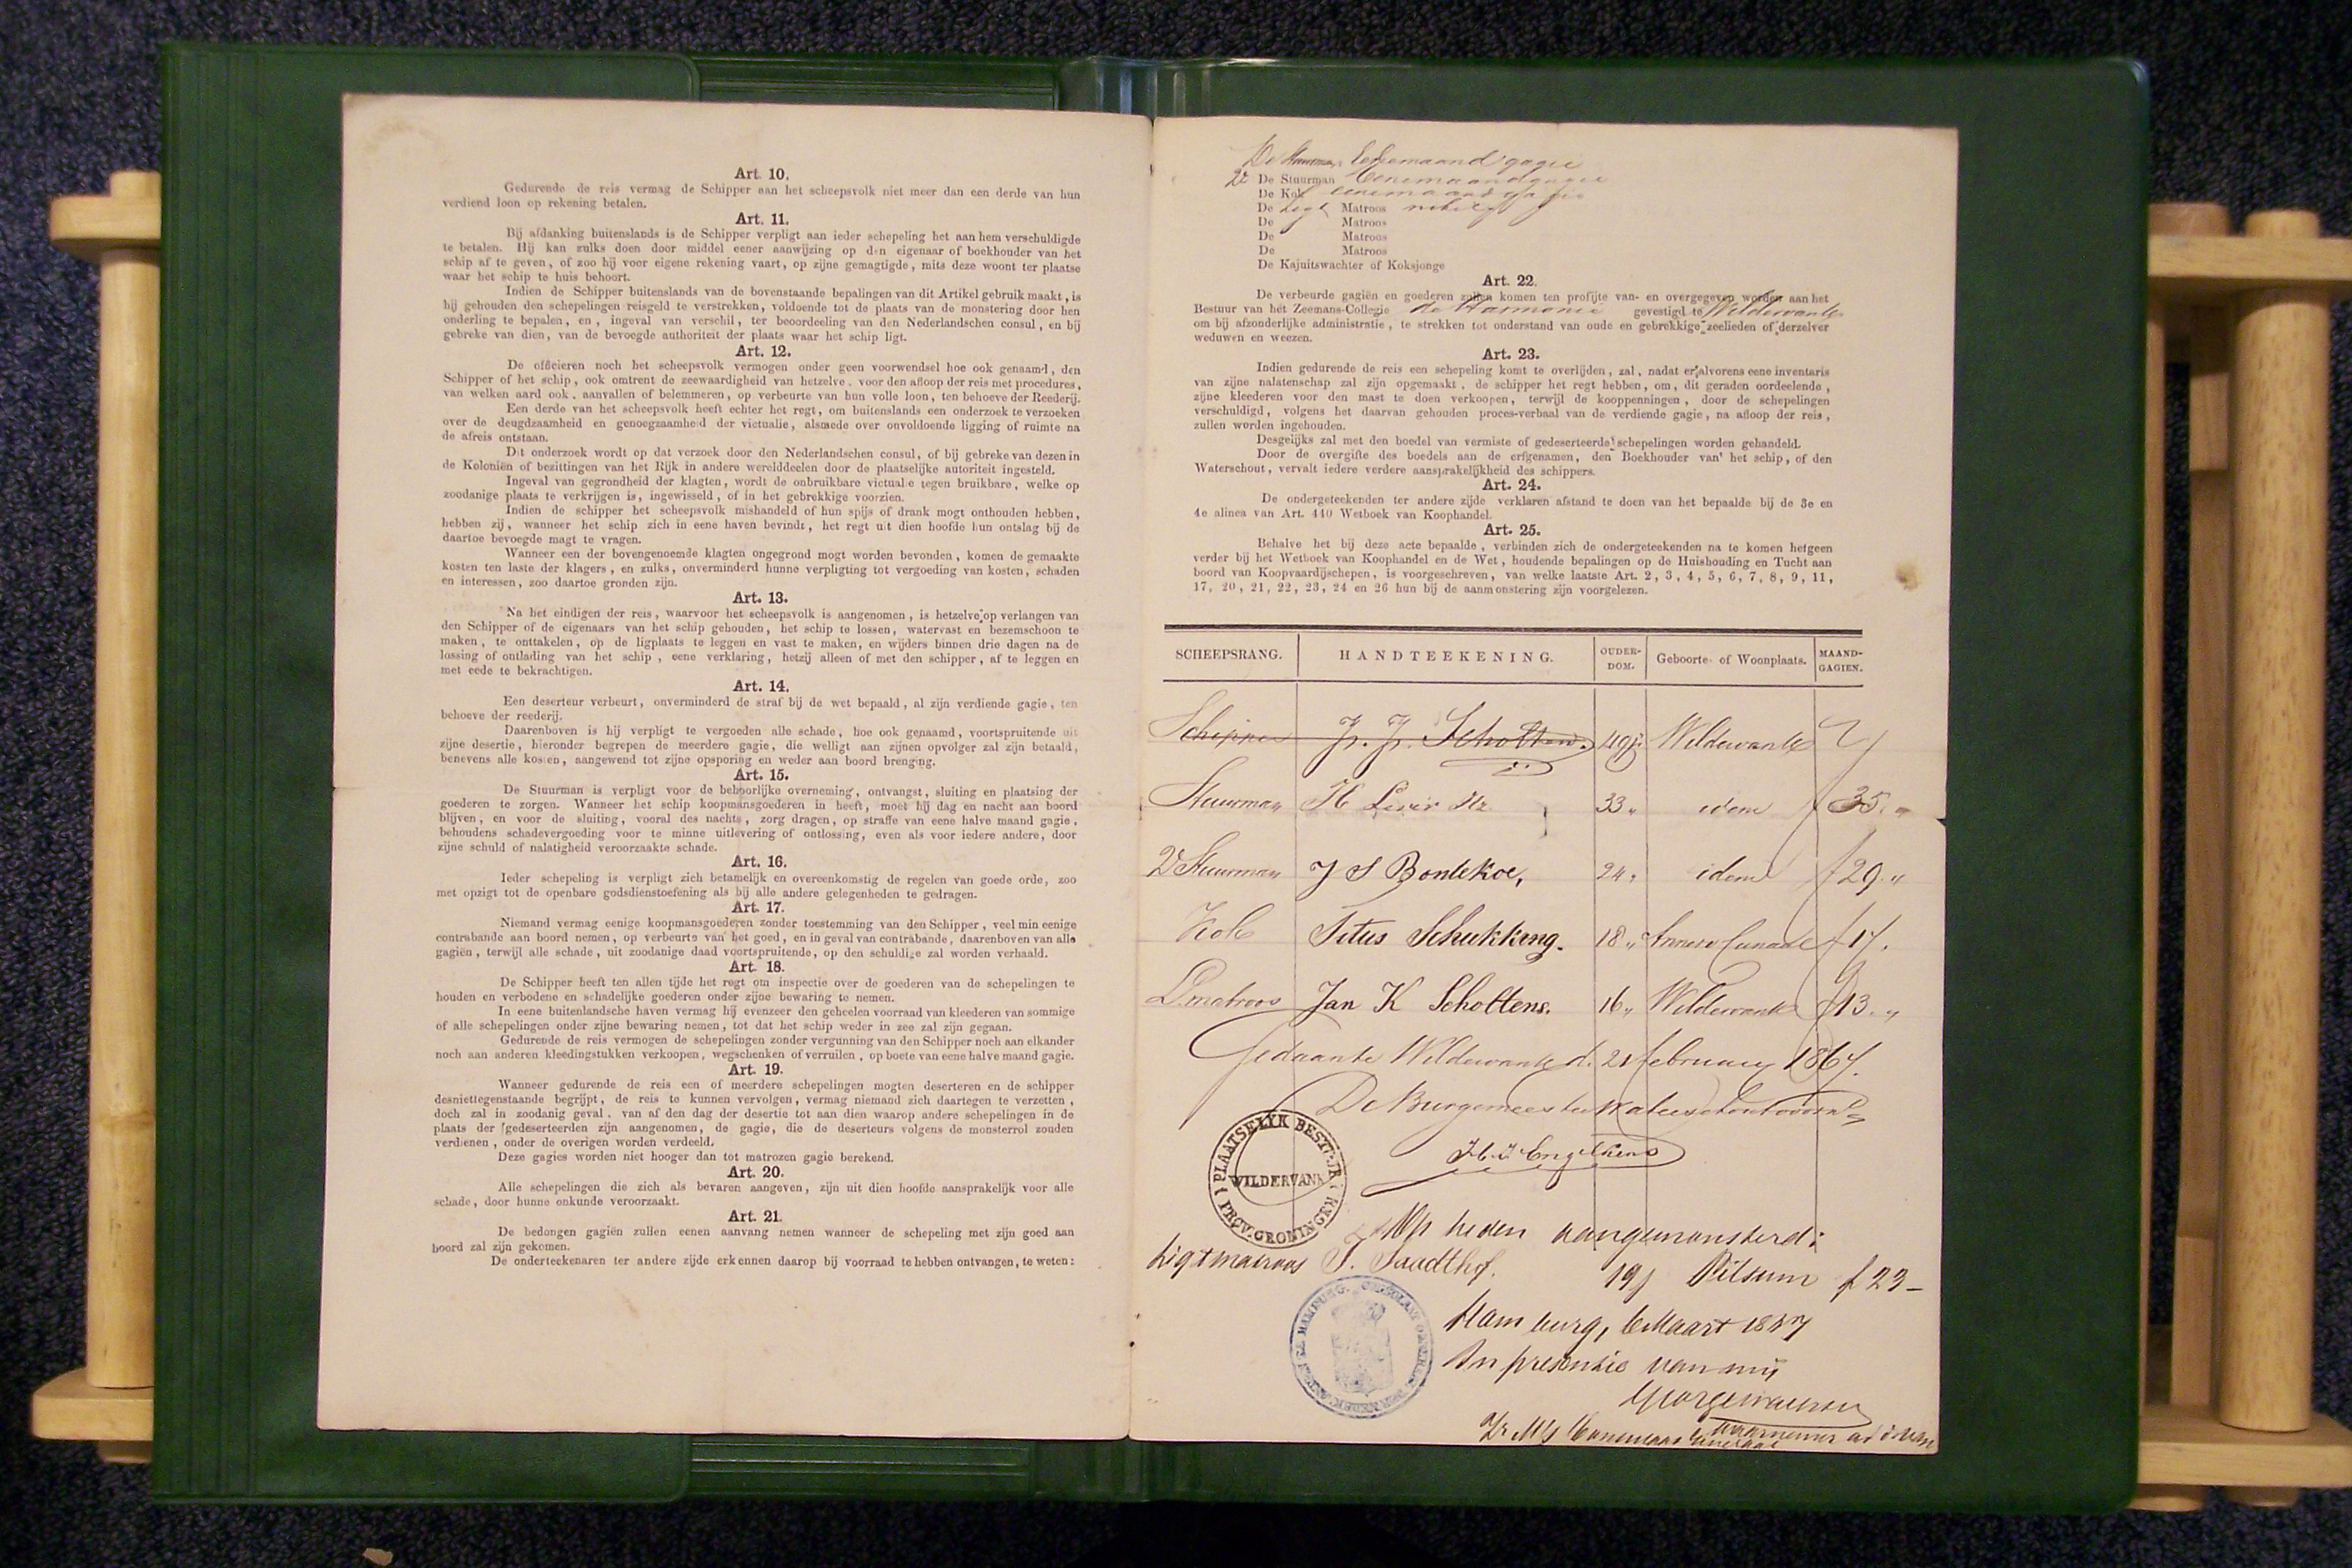 Art. 10.
Gedurende de reis vermag de Schipper aan het scheepsvolk niet meer dan een derde van hun
verdiend loon op rekening betalen.
Art. 11.
Bij afdanking buitenslands is de Schipper verpligt aan ieder schepeling het aan hem verschuldigde
te betalen. Hij kan zulks doen door middel eener aanwijzing op den eigenaar of boekhouder van het
schip af te geven, of zoo hij voor eigene rekening vaart, op zijne gemagtigde, mits deze woont ter plaatse
waar het schip te huis behoort.
Indien de Schipper buitenslands van de bovenstaande bepalingen van dit Artikel gebruik maakt, is
hij gehouden den schepelingen reisgeld te verstrekken, voldoende tot de plaats van de monstering door hen
onderling te bepalen, en, ingeval van verschil, ter beoordeeling van den Nederlandschen consul, en bij
gebreke van dien, van de bevoegde authoriteit der plaats waar het schip ligt.
Art. 12.
De officieren noch het scheepsvolk vermogen onder geen voorwendsel hoe ook genaamd, den
Schipper of het schip, ook omtrent de zeewaardigheid van hetzelve, voor den afloop der reis met procedures,
van welken aard ook, aanvallen of belemmeren, op verbeurte van hun volle loon, ten behoeve der Reederij.
Een derde van het scheepsvolk heeft echter het regt, om buitenslands een onderzoek te verzoeken
over de deugdzaamheid en genoegzaamheid der victualie, alsmede over onvoldoende ligging of ruimte na
de afreis ontstaan.
Dit onderzoek wordt op dat verzoek door den Nederlandschen consul, of bij gebreke van dezen in
de Koloniën of bezittingen van het Rijk in andere werelddeelen door de plaatselijke autoriteit ingesteld.
Ingeval van gegrondheid der klagten, wordt de onbruikbare victualie tegen bruikbare, welke op
zoodanige plaats te verkrijgen is, ingewisseld, of in het gebrekkige voorzien.
Indien de schipper het scheepsvolk mishandeld of hun spijs of drank mogt onthouden hebben,
hebben zij, wanneer het schip zich in eene haven bevindt, het regt uit dien hoofde hun ontslag bij de
daartoe bevoegde magt te vragen.
Wanneer een der bovengenoemde klagten ongegrond mogt worden bevonden, komen de gemaakte
kosten ten laste der klagers, en zulks, onverminderd hunne verpligting tot vergoeding van kosten, schaden
en interessen, zoo daartoe gronden zijn.
Art. 13.
Na het eindigen der reis, waarvoor het scheepsvolk is aangenomen, is hetzelve op verlangen van
den Schipper of de eigenaars van het schip gehouden, het schip te lossen, watervast en bezemschoon te
maken, te onttakelen, op de ligplaats te leggen en vast te maken, en wijders binnen drie dagen na de
lossing of ontlading van het schip, eene verklaring, hetzij alleen of met den schipper, af te leggen en
met eede te bekrachtigen.
Art. 14.
Een deserteur verbeurt, onverminderd de straf bij de wet bepaald, al zijn verdiende gagie, ten
behoeve der reederij.
Daarenboven is hij verpligt te vergoeden alle schade, hoe ook genaamd, voortspruitende uit
zijne desertie, hieronder begrepen de meerdere gagie, die welligt aan zijnen opvolger zal zijn betaald,
benevens alle kosten, aangewend tot zijne opsporing en weder aan boord brenging.
Art. 15.
De Stuurman is verpligt voor de behoorlijke overneming, ontvangst, sluiting en plaatsing der
goederen te zorgen. Wanneer het schip koopmansgoederen in heeft, moet hij dag en nacht aan boord
blijven, en voor de sluiting, vooral des nachts, zorg dragen, op straffe van eene halve maand gagie,
behoudens schadevergoeding voor te minne uitlevering of ontlossing, even als voor iedere andere, door
zijne schuld of nalatigheid veroorzaakte schade.
Art. 16.
Ieder schepeling is verpligt zich betamelijk en overeenkomstig de regelen van goede orde, zoo
met opzigt tot de openbare godsdienstoefening als bij alle andere gelegenheden te gedragen.
Art. 17.
Niemand vermag eenige koopmansgoederen zonder toestemming van den Schipper, veel min eenige
contrabande aan boord nemen, op verbeurte van het goed, en in geval van contrabande, daarenboven van alle
gagiën, terwijl alle schade, uit zoodanige daad voortspruitende, op den schuldige zal worden verhaald.
Art. 18.
De Schipper heeft ten allen tijde het regt om inspectie over de goederen van de schepelingen te
houden en verbodene en schadelijke goederen onder zijne bewaring te nemen.
In eene buitenlandsche haven vermag hij evenzeer den geheelen voorraad van kleederen van sommige
of alle schepelingen onder zijne bewaring nemen, tot dat het schip weder in zee zal zijn gegaan.
Gedurende de reis vermogen de schepelingen zonder vergunning van den Schipper noch aan elkander
noch aan anderen kleedingstukken verkoopen, wegschenken of verruilen, op boete van eene halve maand gagie.
Art. 19.
Wanneer gedurende de reis een of meerdere schepelingen mogten deserteren en de schipper
desniettegenstaande begrijpt, de reis te kunnen vervolgen, vermag niemand zich daartegen te verzetten,
doch zal in zoodanig geval, van af den dag der desertie tot aan dien waarop andere schepelingen in de
plaats der gedeserteerden zijn aangenomen, de gagie, die de deserteurs volgens de monsterrol zouden
verdienen, onder de overigen worden verdeeld.
Deze gagies worden niet hooger dan tot matrozen gagie berekend.
Art. 20.
Alle schepelingen die zich als bevaren aangeven, zijn uit dien hoofde aansprakelijk voor alle
schade, door hunne onkunde veroorzaakt.
Art. 21.
De bedongen gagiën zullen eenen aanvang nemen wanneer de schepeling met zijn goed aan
boord zal zijn gekomen.
De onderteekenaren ter andere zijde erkennen daarop bij voorraad te hebben ontvangen, te weten:
De Stuurman Eenemaand gagie
2e De Stuurman Eenemaandgagie
De Kok eenemaand gagie
De Ligt Matroos
De Matroos
De Matroos
De Matroos
De Kajuitswachter of Koksjonge
Art. 22.
De verbeurde gagiën en goederen zullen komen ten profijte van- en overgegeven worden aan het
Bestuur van het Zeemans-Collegie de Harmonie gevestigd te Wildervank
om bij afzonderlijke administratie, te strekken tot onderstand van oude en gebrekkige zeelieden of derzelver
weduwen en weezen.
Art. 23.
Indien gedurende de reis een schepeling komt te overlijden, zal, nadat er alvorens eene inventaris
van zijne nalatenschap zal zijn opgemaakt, de schipper het regt hebben, om, dit geraden oordeelende,
zijne kleederen voor den mast te doen verkoopen, terwijl de kooppenningen, door de schepelingen
verschuldigd, volgens het daarvan gehouden proces-verbaal van de verdiende gagie, na afloop der reis,
zullen worden ingehouden.
Desgelijks zal met den boedel van vermiste of gedeserteerde schepelingen worden gehandeld.
Door de overgifte des boedels aan de erfgenamen, den Boekhouder van het schip, of den
Waterschout, vervalt iedere verdere aansprakelijkheid des schippers.
Art. 24.
De ondergeteekenden ter andere zijde verklaren afstand te doen van het bepaalde bij de 3e en
4e alinea van Art. 440 Wetboek van Koophandel.
Art. 25.
Behalve het bij deze acte bepaalde, verbinden zich de ondergeteekenden na te komen hetgeen
verder bij het Wetboek van Koophandel en de Wet, houdende bepalingen op de Huishouding en Tucht aan
boord van Koopvaardijschepen, is voorgeschreven, van welke laatste Art. 2, 3, 4, 5, 6, 7, 8, 9, 11,
17, 20, 21, 22, 23, 24 en 26 hun bij de aanmonstering zijn voorgelezen.
SCHEEPSRANG. HANDTEEKENING. OUDERDOM. Geboorte- of Woonplaats. MAANDGAGIEN.
Schipper J. J. Scholtens. 49j. Wildervank
Stuurman H 33 " idem f 35. "
2e Stuurman J S Bontekoe, 24 " idem f 29. "
Kok Titus Schukking. 18 " f 17.
L. matroos Jan K Scholtens. 16 " Wildervank f 13. "
Gedaan te Wildervank d. 21 februarij 1867.
De Burgemeester Waterschout voorn.
H. J. Engelkens
PLAATSELYK BESTUUR
WILDERVANK
PROV. GRONINGEN
Op heden aangemonsterd:
Ligtmatroos J. Saadthof. 19j Pilsum f 23 -
Hamburg, 6 Maart 1867
In presentie van mij